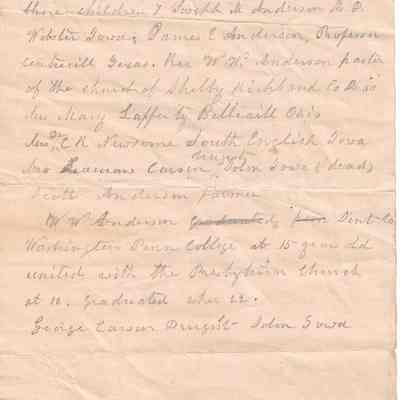 children 7 Joseph M Anderson M. D.
Webster Iowa; James E Anderson, Professor
Texas. Rev W. W. Anderson paster
of the church of Shelby Richland Co
Mrs Mary Lafferty Ohio
Mrs Dr C R Newsome South English Iowa
Mrs Carson, Iowa (dead)
Scott Anderson farmer
W W Anderson graduated, Sent to
Washington Penn College at 15 year old
united with the Presbyterian Church
at 10. graduated when 22.
George Carson Drugist Iowa